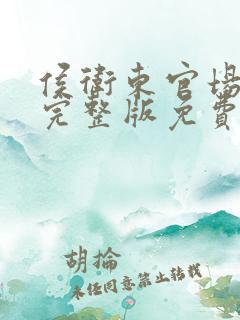 侯衛東官場
完整版免費
胡掄
未經同意禁止轉載